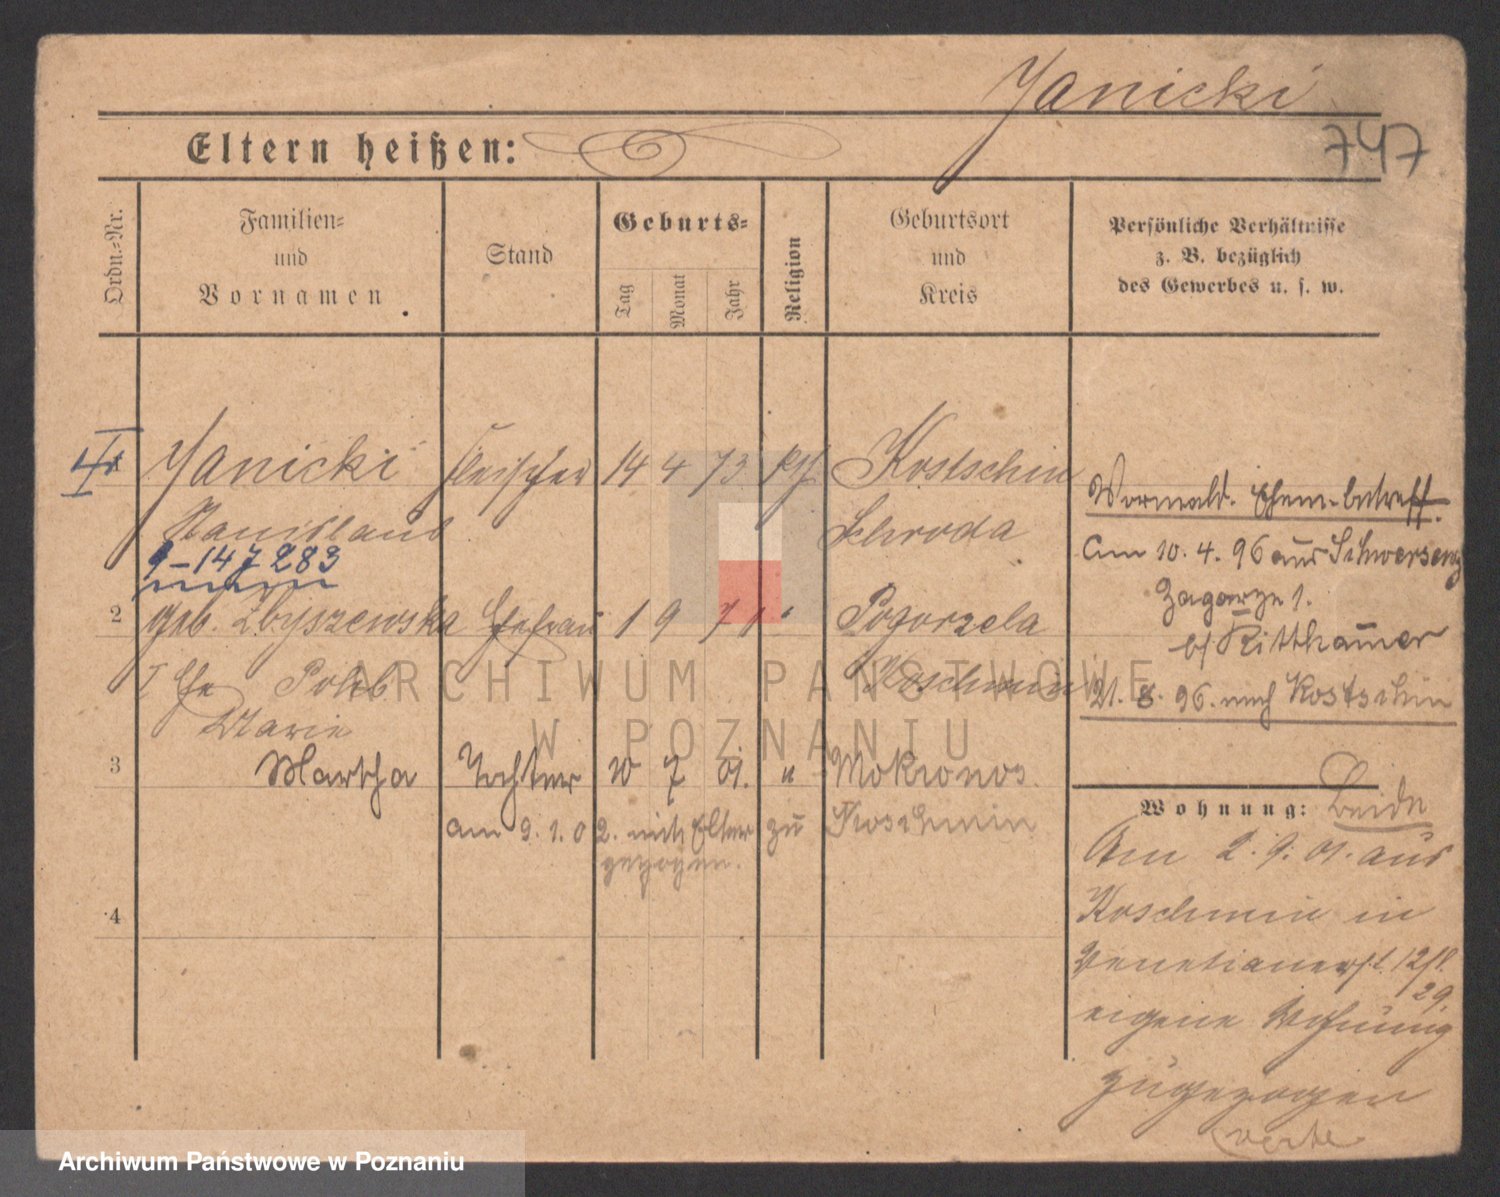 Janicki
747
Eltern heißen:
Ordn.-Nr.
Familien-
und
Vornamen
Stand
Geburts-
Tag
Monat
Jahr
Religion
Geburtsort
und
Kreis
Persönliche Verhältnisse
z. B. bezüglich
des Gewerbes u. s. w.
Janicki Fleischer 14 4 73 kth Kostschin
Stanislaus Schroda
9-147283
2 geb. Zbyszewska Ehefrau 1 9 71 " Pogorzela
I Ehe Pohl Koschmin
Marie
3 Martha Tochter 10 7 01. " Mokronos
am 9. 1. 02. mit Eltern zu Koschmin
gezogen.
4
Am 10. 4. 96 aus Schwersenz
Zagorze 1.
b/ Ritthammer
21. 8. 96. nach Kostschin
Wohnung: Beide
Am 2. 9. 01. aus
Koschmin in
Venetianerst. 12/
29.
eigene Wohnung
zugezogen
verte
ARCHIWUM PAŃSTWOWE
W POZNANIU
Archiwum Państwowe w Poznaniu